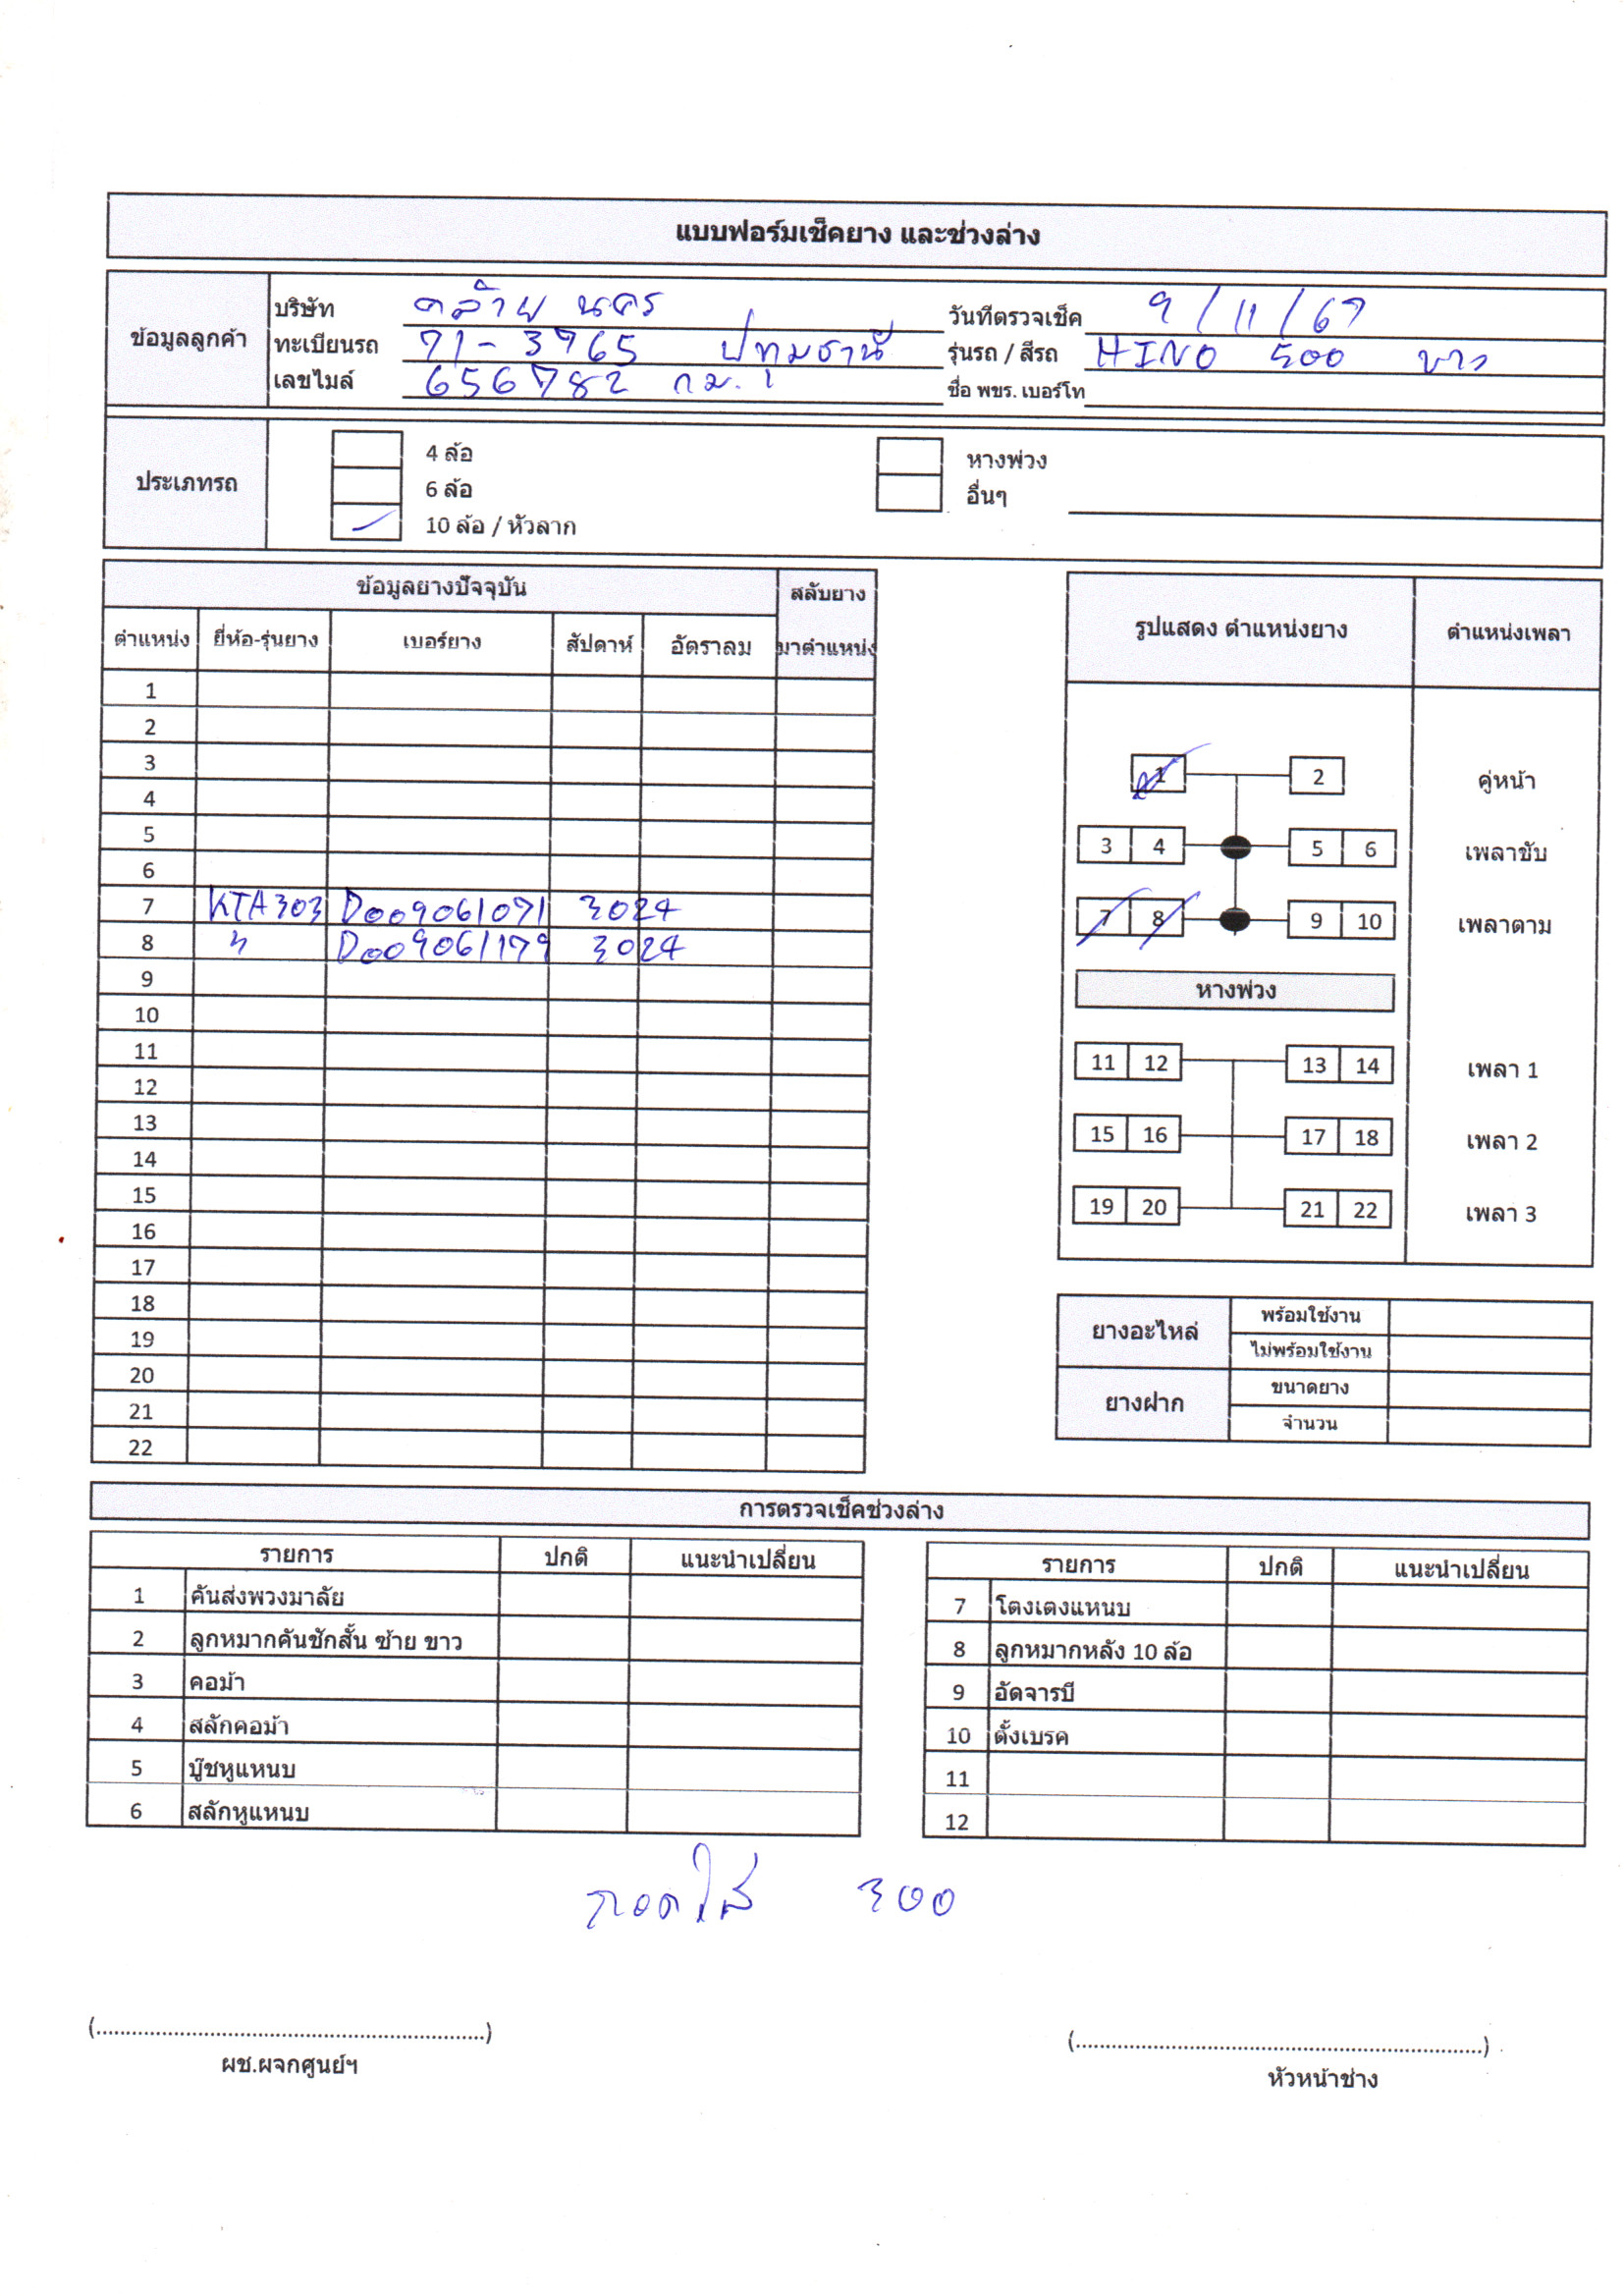 แบบฟอร์มเช็คยาง และช่วงล่าง
ข้อมูลลูกค้า
บริษัท คล้าย นคร วันที่ตรวจเช็ค 9/11/67
ทะเบียนรถ 71-3965 ปทุมธานี รุ่นรถ / สีรถ HINO 500 ขาว
เลขไมล์ 656782 กม. ชื่อ พขร. เบอร์โท
ประเภทรถ
4 ล้อ หางพ่วง
6 ล้อ อื่นๆ
10 ล้อ / หัวลาก
ข้อมูลยางปัจจุบัน สลับยาง
ตำแหน่ง ยี่ห้อ-รุ่นยาง เบอร์ยาง สัปดาห์ อัตราลม มาตำแหน่ง
1
2
3
4
5
6
7 KTA303 D009061071 3024
8 " D009061179 3024
9
10
11
12
13
14
15
16
17
18
19
20
21
22
รูปแสดง ตำแหน่งยาง ตำแหน่งเพลา
1 2 คู่หน้า
3 4 5 6 เพลาขับ
7 8 9 10 เพลาตาม
หางพ่วง
11 12 13 14 เพลา 1
15 16 17 18 เพลา 2
19 20 21 22 เพลา 3
ยางอะไหล่ พร้อมใช้งาน
ไม่พร้อมใช้งาน
ยางฝาก ขนาดยาง
จำนวน
การตรวจเช็คช่วงล่าง
รายการ ปกติ แนะนำเปลี่ยน
1 คันส่งพวงมาลัย
2 ลูกหมากคันชักสั้น ซ้าย ขาว
3 คอม้า
4 สลักคอม้า
5 บู๊ชหูแหนบ
6 สลักหูแหนบ
รายการ ปกติ แนะนำเปลี่ยน
7 โตงเตงแหนบ
8 ลูกหมากหลัง 10 ล้อ
9 อัดจารบี
10 ตั้งเบรค
11
12
ถอดใส่ 300
(................................................................)
ผช.ผจกศูนย์ฯ
(....................................................................)
หัวหน้าช่าง